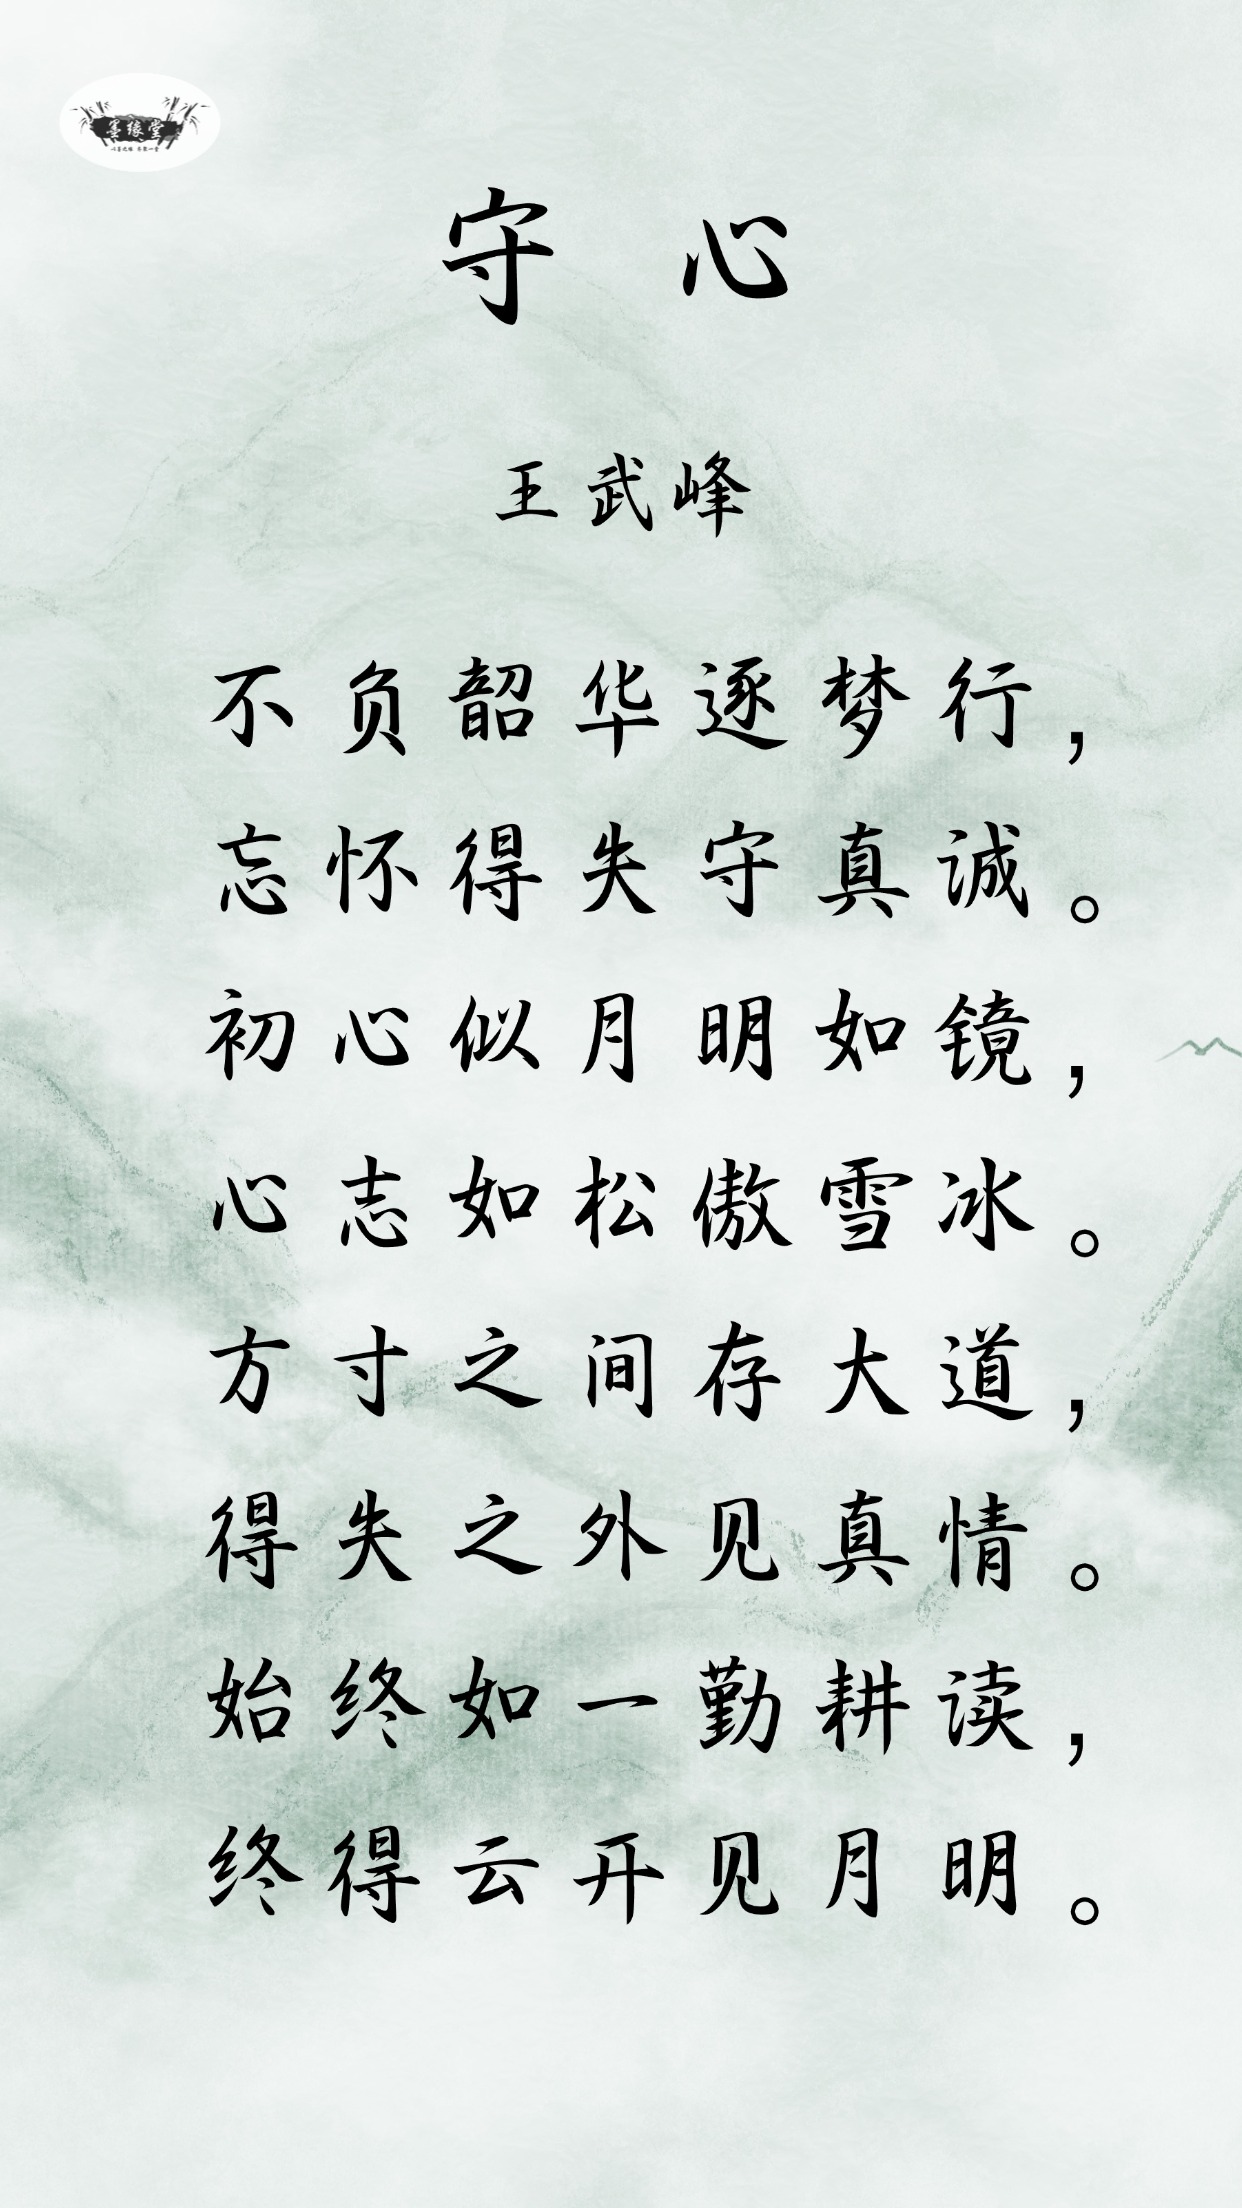 墨缘堂
守心
王武峰
不负韶华逐梦行，
忘怀得失守真诚。
初心似月明如镜，
心志如松傲雪冰。
方寸之间存大道，
得失之外见真情。
始终如一勤耕读，
终得云开见月明。